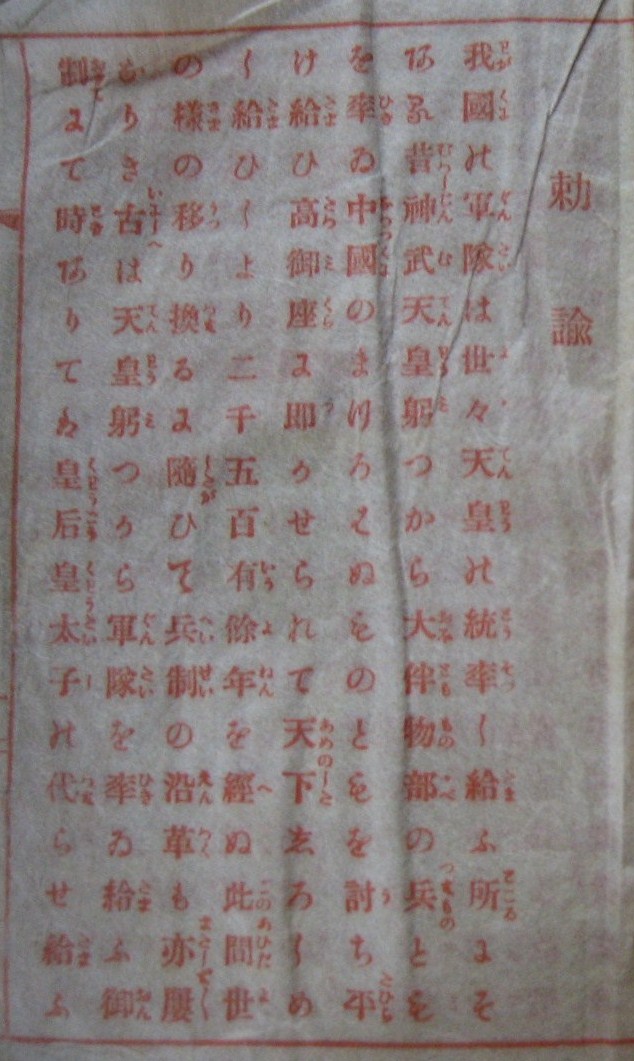 勅諭
我國の軍隊は世々天皇の統率し給ふ所にそ
ある昔神武天皇躬つから大伴物部の兵ともを
率ゐ中國のまつろはぬものともを討ち平
け給ひ高御座に即かせられて天下しろしめ
し給ひしより二千五百有餘年を經ぬ此間世
の様の移り換るに隨ひて兵制の沿革も亦屢
なりき古は天皇躬つから軍隊を率ゐ給ふ御
制にて時ありては皇后皇太子の代らせ給ふ